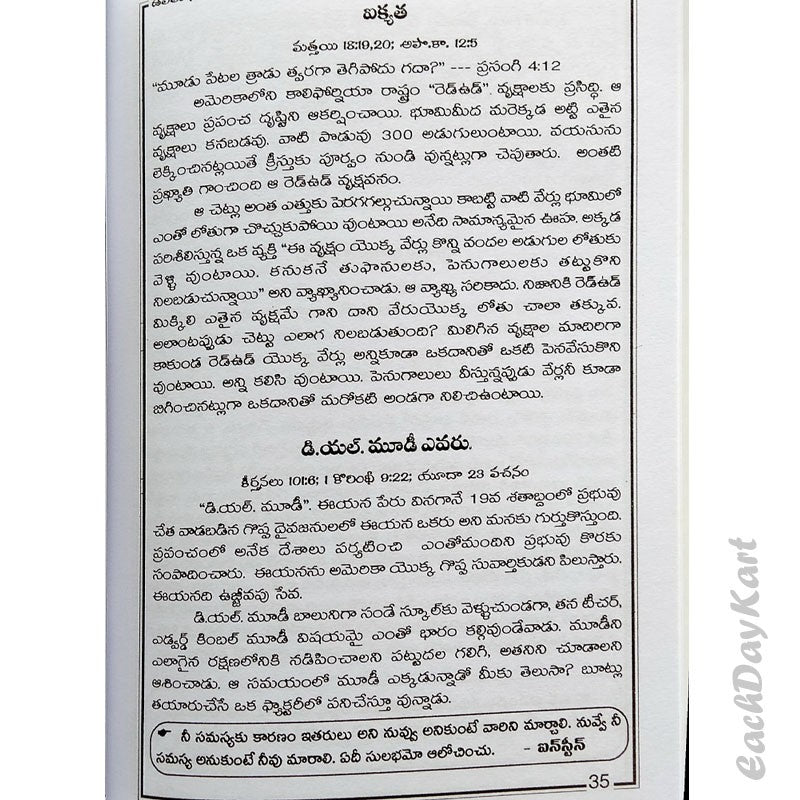 ఐక్యత
మత్తయి 18:19,20; అపొ.కా. 12:5
"మూడు పేటల త్రాడు త్వరగా తెగిపోదు గదా?" --- ప్రసంగి 4:12
అమెరికాలోని కాలిఫోర్నియా రాష్ట్రం "రెడ్ఉడ్". వృక్షాలకు ప్రసిద్ధి. ఆ
వృక్షాలు ప్రపంచ దృష్టిని ఆకర్షించాయి. భూమిమీద మరెక్కడ అట్టి ఎతైన
వృక్షాలు కనబడవు. వాటి పొడువు 300 అడుగులుంటాయి. వయసును
లెక్కించినట్లయితే క్రీస్తుకు పూర్వం నుండి వున్నట్లుగా చెపుతారు. అంతటి
ప్రఖ్యాతి గాంచింది ఆ రెడ్ఉడ్ వృక్షవనం.
ఆ చెట్లు అంత ఎత్తుకు పెరగగల్గుచున్నాయి కాబట్టి వాటి వేర్లు భూమిలో
ఎంతో లోతుగా చొచ్చుకుపోయి వుంటాయి అనేది సామాన్యమైన ఊహ. అక్కడ
పరిశీలిస్తున్న ఒక వ్యక్తి "ఈ వృక్షం యొక్క వేర్లు కొన్ని వందల అడుగుల లోతుకు
వెళ్లి వుంటాయి. కనుకనే తుఫానులకు, పెనుగాలులకు తట్టుకొని
నిలబడుచున్నాయి" అని వ్యాఖ్యానించాడు. ఆ వ్యాఖ్య సరికాదు. నిజానికి రెడ్ఉడ్
మిక్కిలి ఎతైన వృక్షమే గాని దాని వేరుయొక్క లోతు చాలా తక్కువ.
అలాంటప్పుడు చెట్టు ఎలాగ నిలబడుతుంది? మిలిగిన వృక్షాల మాదిరిగా
కాకుండ రెడ్ఉడ్ యొక్క వేర్లు అన్నికూడా ఒకదానితో ఒకటి పెనవేసుకొని
వుంటాయి. అన్ని కలిసి వుంటాయి. పెనుగాలులు వీస్తున్నప్పుడు వేర్లనీ కూడా
బిగించినట్లుగా ఒకదానితో మరోకటి అండగా నిలిచిఉంటాయి.
డి.యల్. మూడీ ఎవరు.
కీర్తనలు 101:6; 1 కొరింథీ 9:22; యూదా 23 వచనం
"డి.యల్. మూడీ". ఈయన పేరు వినగానే 19వ శతాబ్దంలో ప్రభువు
చేత వాడబడిన గొప్ప దైవజనులలో ఈయన ఒకరు అని మనకు గుర్తుకొస్తుంది.
ప్రపంచంలో అనేక దేశాలు పర్యటించి ఎంతోమందిని ప్రభువు కొరకు
సంపాదించారు. ఈయనను అమెరికా యొక్క గొప్ప సువార్తికుడని పిలుస్తారు.
ఈయనది ఉజ్జీవపు సేవ.
డి.యల్. మూడీ బాలునిగా సండే స్కూల్‌కు వెళ్ళుచుండగా, తన టీచర్,
ఎడ్వర్డ్ కింబల్ మూడీ విషయమై ఎంతో భారం కల్గివుండేవాడు. మూడీని
ఎలాగైన రక్షణలోనికి నడిపించాలని పట్టుదల గలిగి, అతనిని చూడాలని
ఆశించాడు. ఆ సమయంలో మూడీ ఎక్కడున్నాడో మీకు తెలుసా? బూట్లు
తయారుచేసే ఒక ఫ్యాక్టరీలో పనిచేస్తూ వున్నాడు.
☛ నీ సమస్యకు కారణం ఇతరులు అని నువ్వు అనికుంటే వారిని మార్చాలి. నువ్వే నీ
సమస్య అనుకుంటే నీవు మారాలి. ఏదీ సులభమో ఆలోచించు. - ఐన్‌స్టీన్
35
EachDayKart